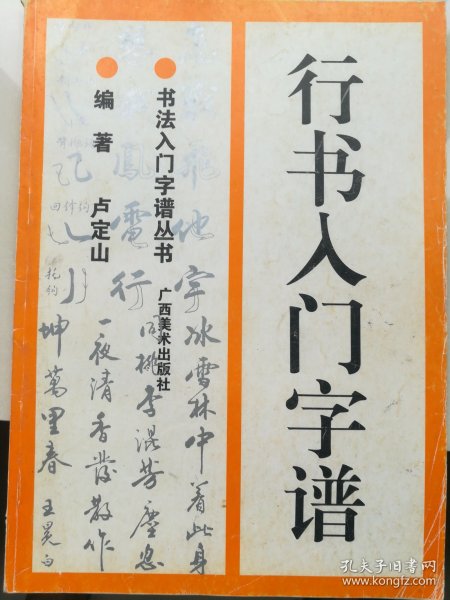 行书入门字谱
书法入门字谱丛书
广西美术出版社
编著 卢定山
飛他字
冰雪林中着此身
鳳電行
同桃李混芳塵忽
一夜清香發散作
坤萬里春 王冕句
孔夫子旧书网
www.kongfz.com